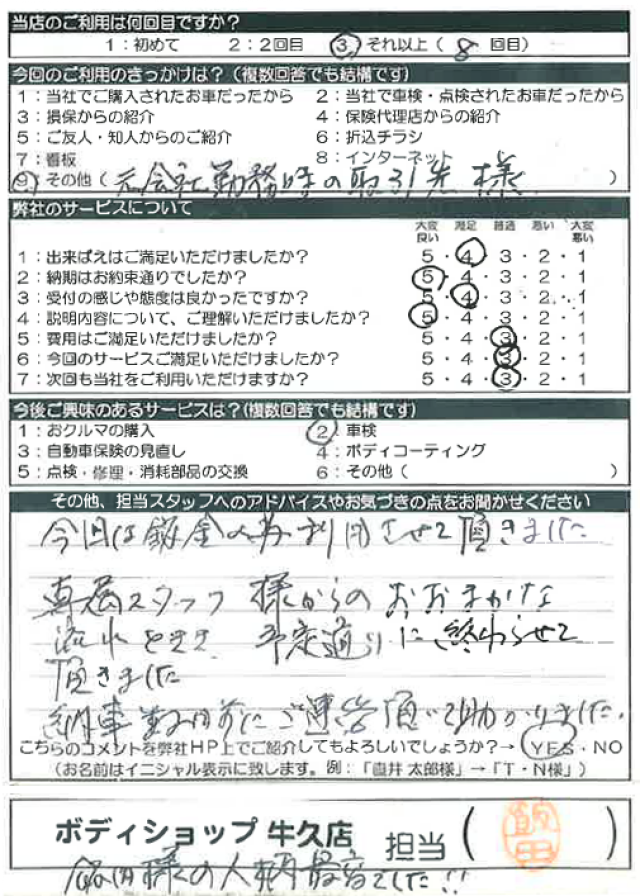 当店のご利用は何回目ですか?
1:初めて 2:2回目 3 それ以上( 8 回目)
今回のご利用のきっかけは?(複数回答でも結構です)
1:当社でご購入されたお車だったから 2:当社で車検・点検されたお車だったから
3:損保からの紹介 4:保険代理店からの紹介
5:ご友人・知人からのご紹介 6:折込チラシ
7:看板 8:インターネット
9 その他(元会社勤務時の取引先 様 )
弊社のサービスについて
大変良い 満足 普通 悪い 大変悪い
1:出来ばえはご満足いただけましたか? 5・4・3・2・1
2:納期はお約束通りでしたか? 5・4・3・2・1
3:受付の感じや態度は良かったですか? 5・4・3・2・1
4:説明内容について、ご理解いただけましたか? 5・4・3・2・1
5:費用はご満足いただけましたか? 5・4・3・2・1
6:今回のサービスご満足いただけましたか? 5・4・3・2・1
7:次回も当社をご利用いただけますか? 5・4・3・2・1
今後ご興味のあるサービスは?(複数回答でも結構です)
1:おクルマの購入 2 車検
3:自動車保険の見直し 4:ボディコーティング
5:点検・修理・消耗部品の交換 6:その他( )
その他、担当スタッフへのアドバイスやお気づきの点をお聞かせください
今回は鈑金 利用させて頂きました
専属スタッフ 様からの おおまかな
流れ 予定通りに 終わらせて
頂きました
納車 前にご連絡頂いて助かりました.
こちらのコメントを弊社HP上でご紹介してもよろしいでしょうか?→ YES・NO
(お名前はイニシャル表示に致します。例:「直井 太郎様」→「T・N様」)
ボディショップ 牛久店 担当( 飯田 )
飯田様の人柄最高でした!!